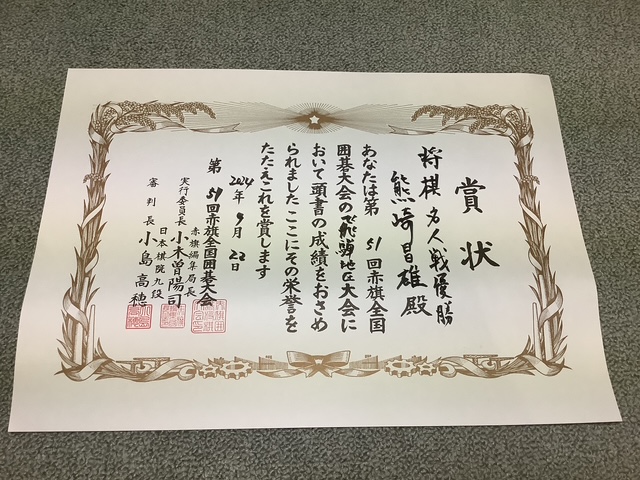 賞状
将棋 名人戦優勝
熊崎昌雄殿
あなたは第 51 回赤旗全国
囲碁大会の飛騨地区大会に
おいて頭書の成績をおさめ
られました ここにその栄誉を
たたえこれを賞します
2024年 9月 22日
第 51回赤旗全国囲碁大会
赤旗編集局長
実行委員長 小木曽陽司
日本棋院九段
審判長 小島高穂